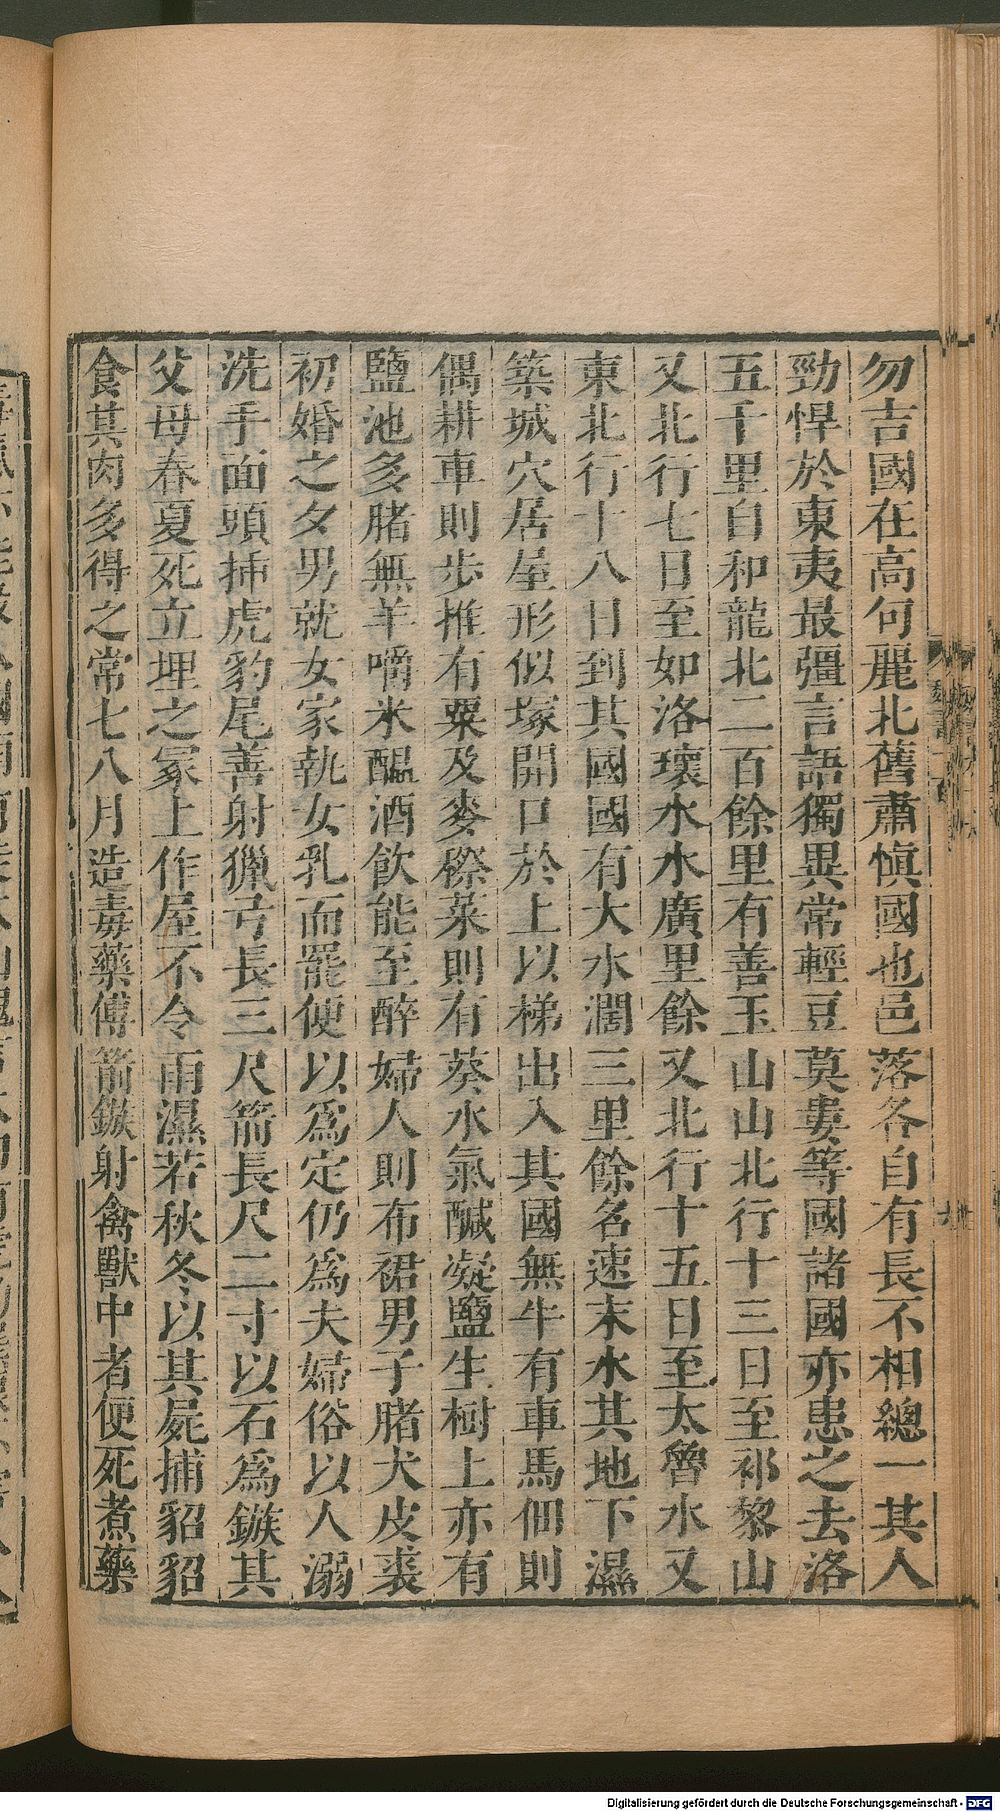 勿吉國在高句麗北舊肅愼國也邑落各自有長不相總一其人
勁悍於東夷最彊言語獨異常輕豆莫婁等國諸國亦患之去洛
五千里自和龍北二百餘里有善玉山山北行十三日至祁黎山
又北行七日至如洛瓌水水廣里餘又北行十五日至太魯水又
東北行十八日到其國國有大水濶三里餘名速末水其地下濕
築城穴居屋形似塚開口於上以梯出入其國無牛有車馬佃則
偶耕車則步推有粟及麥穄菜則有葵水氣醎凝鹽生樹上亦有
鹽池多猪無羊嚼米醞酒飮能至醉婦人則布裙男子猪犬皮裘
初婚之夕男就女家執女乳而罷便以爲定仍爲夫婦俗以人溺
洗手面頭揷虎豹尾善射獵弓長三尺箭長尺二寸以石爲鏃其
父母春夏死立埋之冢上作屋不令雨濕若秋冬以其屍捕貂貂
食其肉多得之常七八月造毒藥傅箭鏃射禽獸中者便死煮藥
Digitalisierung gefördert durch die Deutsche Forschungsgemeinschaft - DFG